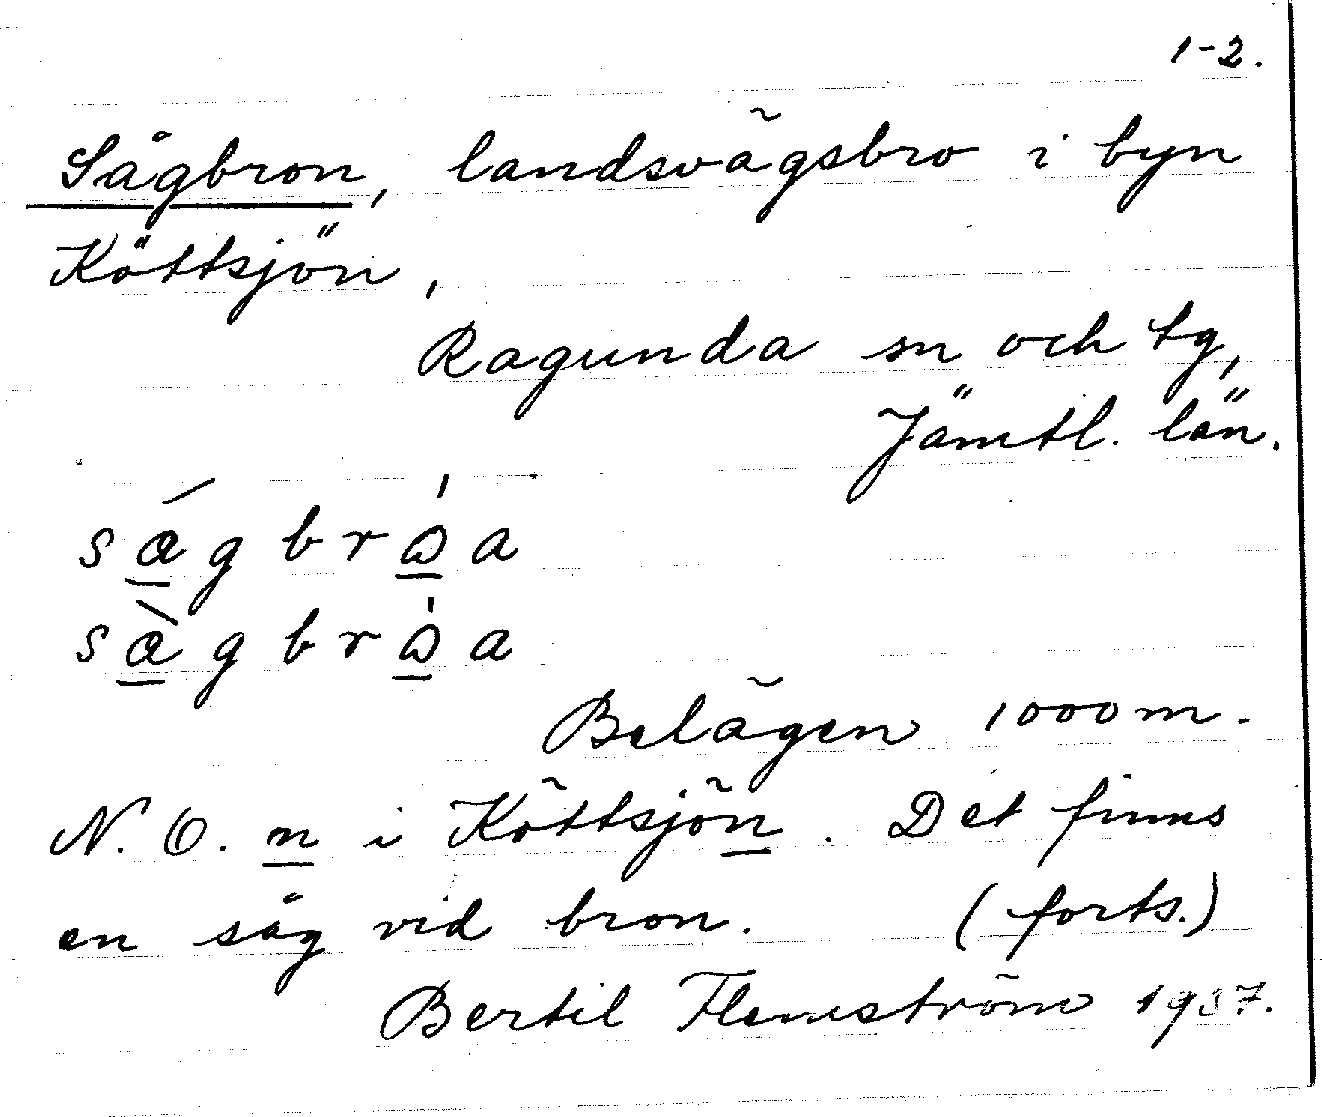 1-2.
Sågbron, landsvägsbro i byn
Köttsjön,
Ragunda sn och tg,
Jämtl. län.
Belägen 1000 m.
N. O. n i Köttsjön. Det finns
en såg vid bron. (forts.)
Bertil Flemström 1937.